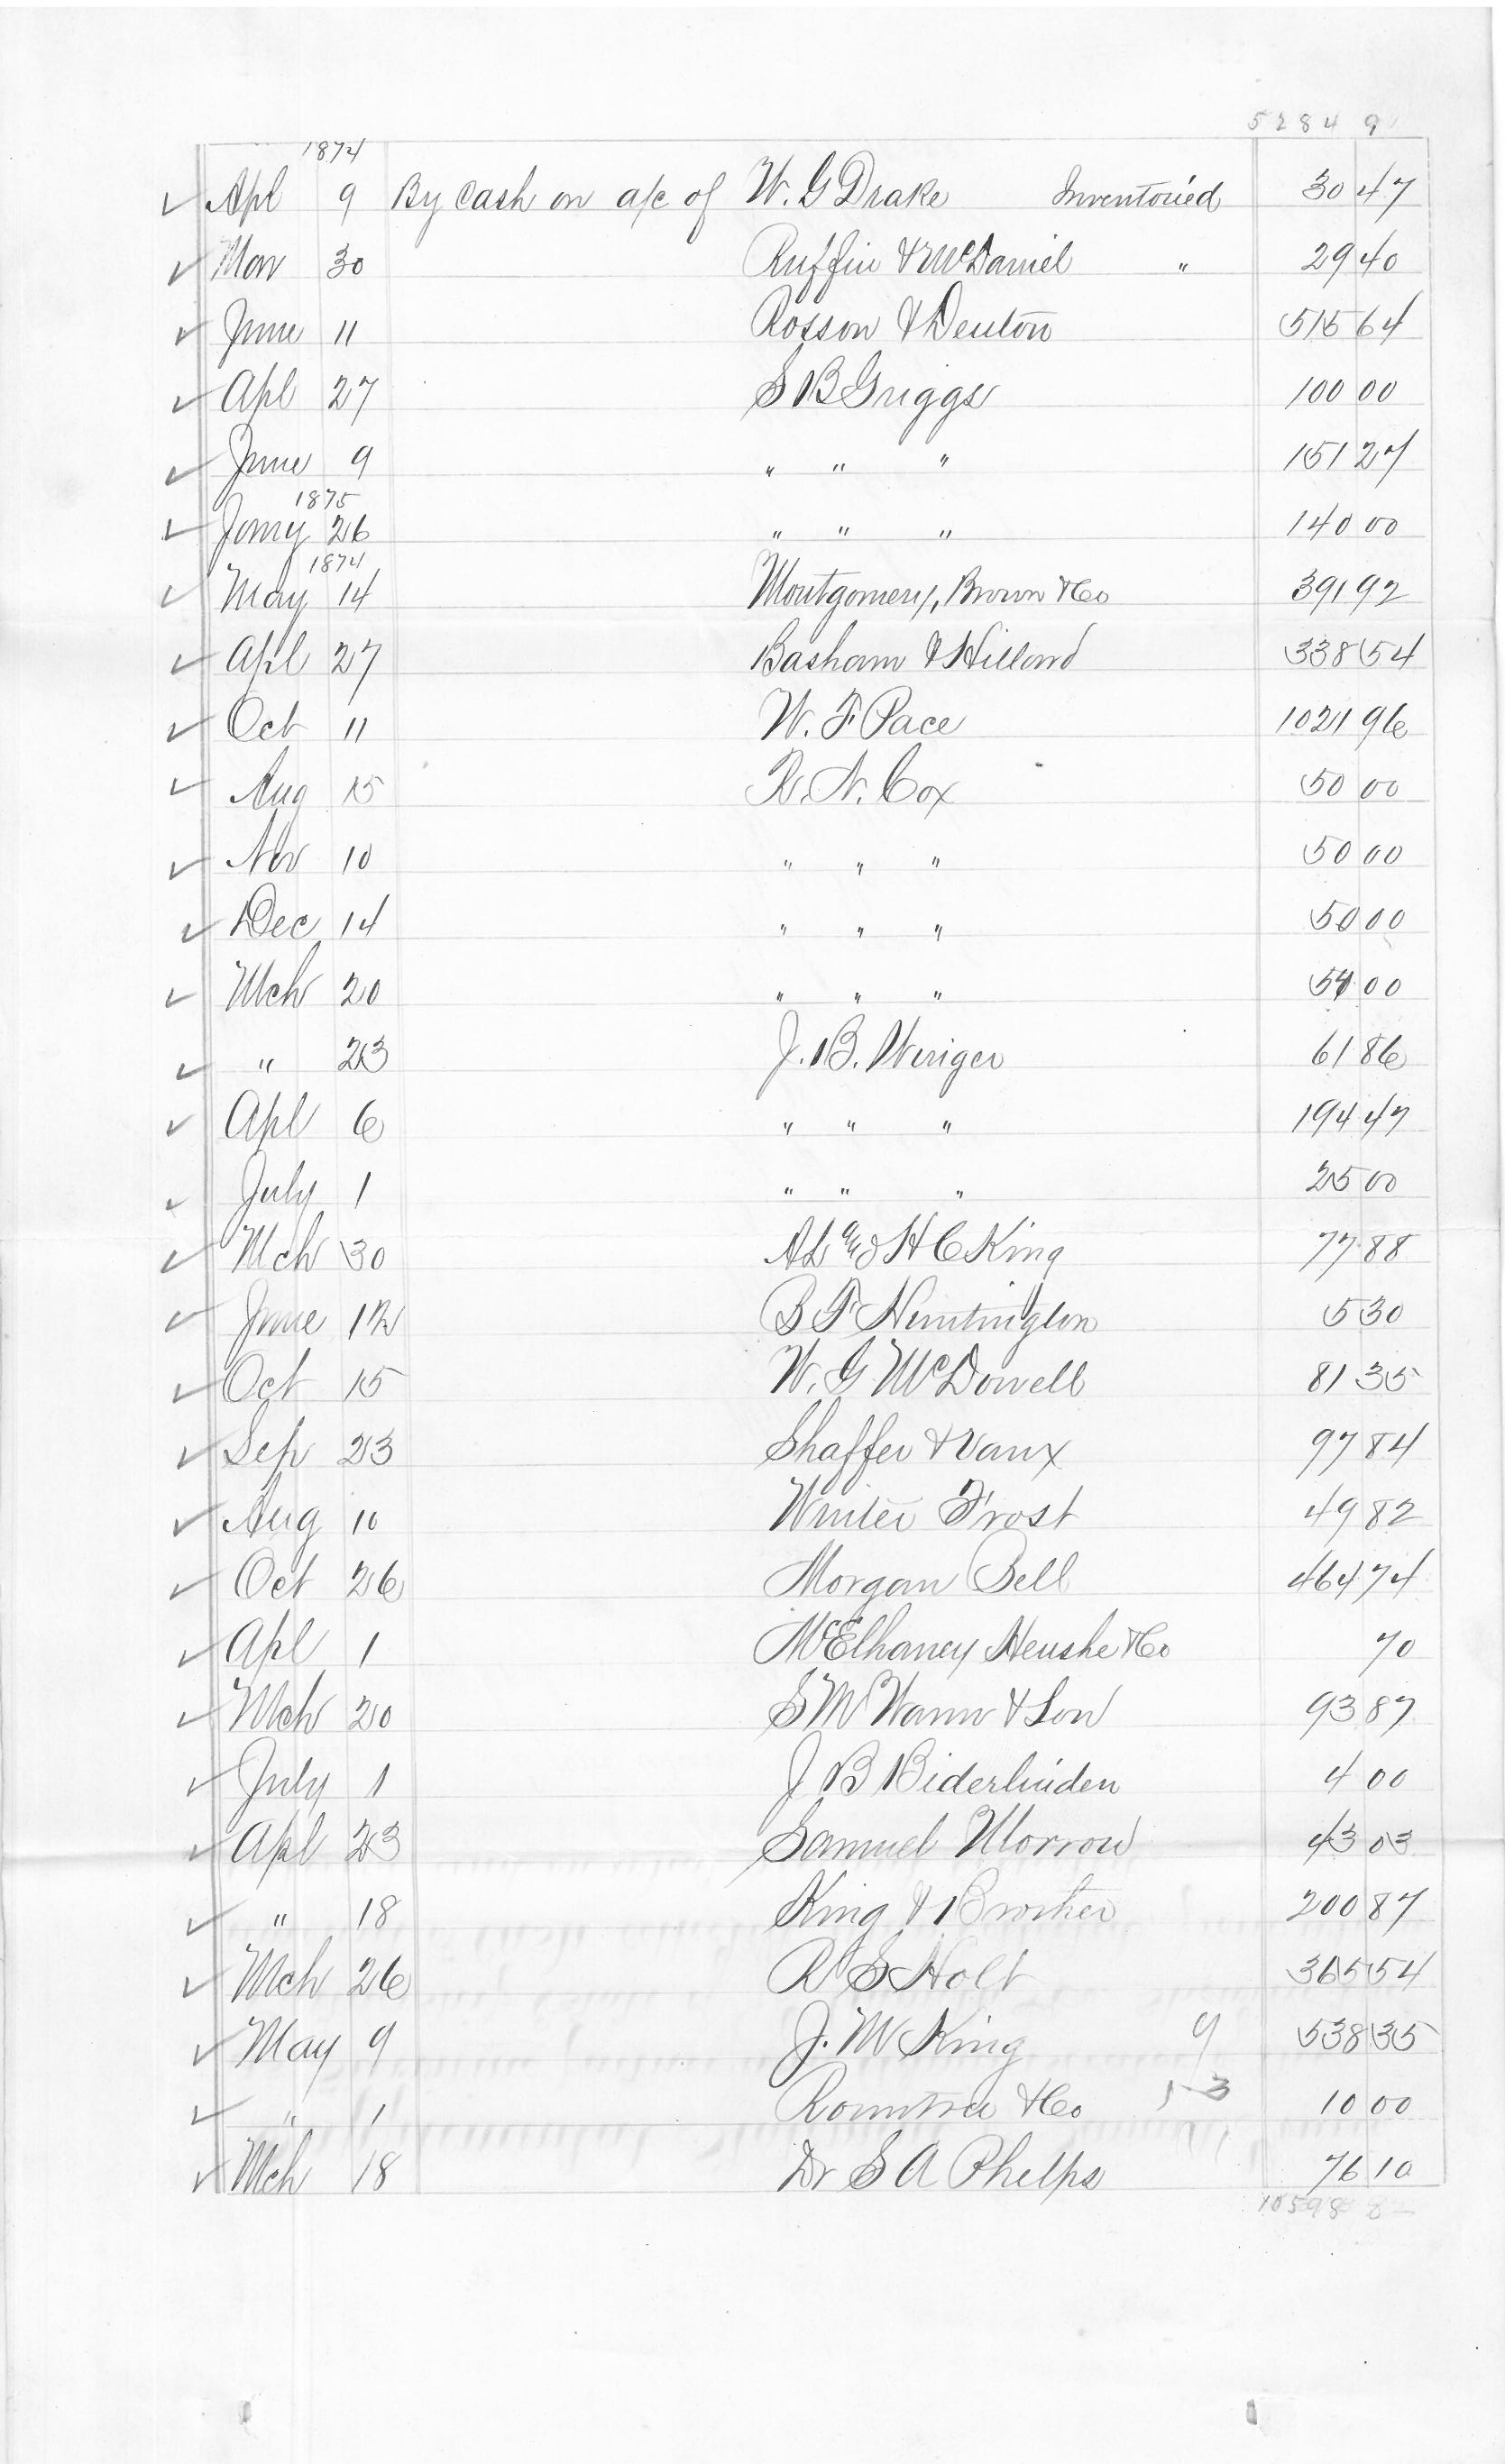 5284 9
1874
Apl 9 By Cash on a/c of W. G Drake Inventoried 30 47
Mar 30 Ruffin & McDaniel " 29 40
June 11 Rosson & Denton 515 64
Apl 27 S B Griggs 100 00
June 9 " " " 151 27
1875
Jany 26 " " " 140 00
1874
May 14 Montgomery, Brown & Co 391 92
Apl 27 Basham & Hilland 338 54
Oct 11 W. F Pace 1021 96
Aug 15 R. N. Cox 50 00
Nov 10 " " " 50 00
Dec 14 " " " 50 00
Mch 20 " " " 00
" 23 J. B. 61 86
Apl 6 " " " 194 47
July 1 " " " 25 00
Mch 30 A L and H C King 77 88
June 12 B F Huntington 5 30
Oct 15 W. G McDowell 81 35
Sep 23 Shaffer & Vaux 97 84
Aug 10 Winter Frost 49 82
Oct 26 Morgan Bell 464 74
Apl 1 McElhaney & Co 70
Mch 20 S M Wann & Son 93 87
July 1 J B Biderlinden 4 00
Apl 23 Samuel Morrow 43 03
" 18 King & Brother 200 87
Mch 26 R S Holt 365 54
May 9 J. M King 9 538 35
" 1 Rountree & Co 10 00
Mch 18 Dr S A Phelps 76 10
10598